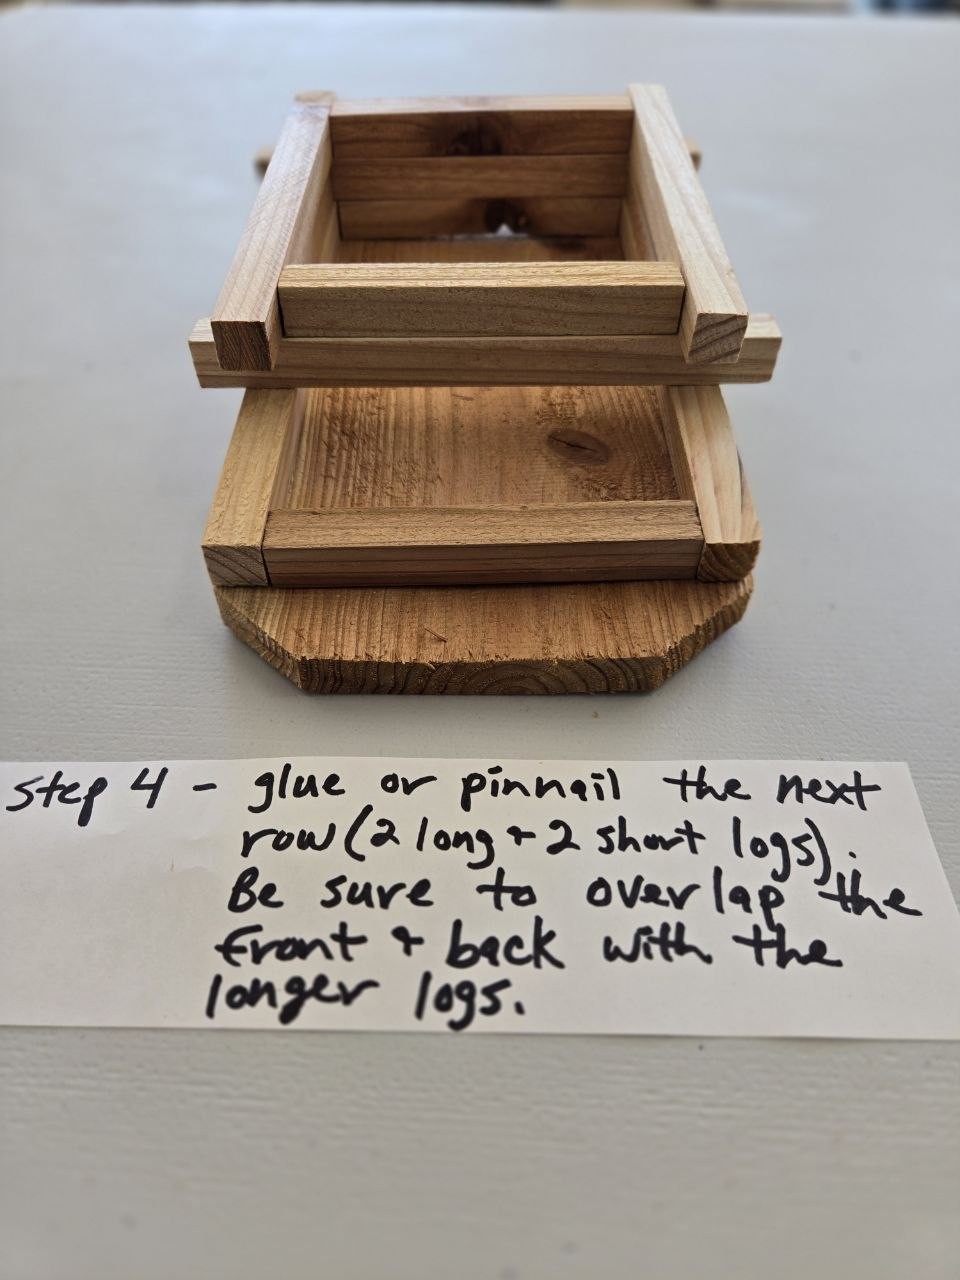 step 4 - glue or pinnail the next
row (2 long + 2 short logs).
Be sure to overlap the
front + back with the
longer logs.